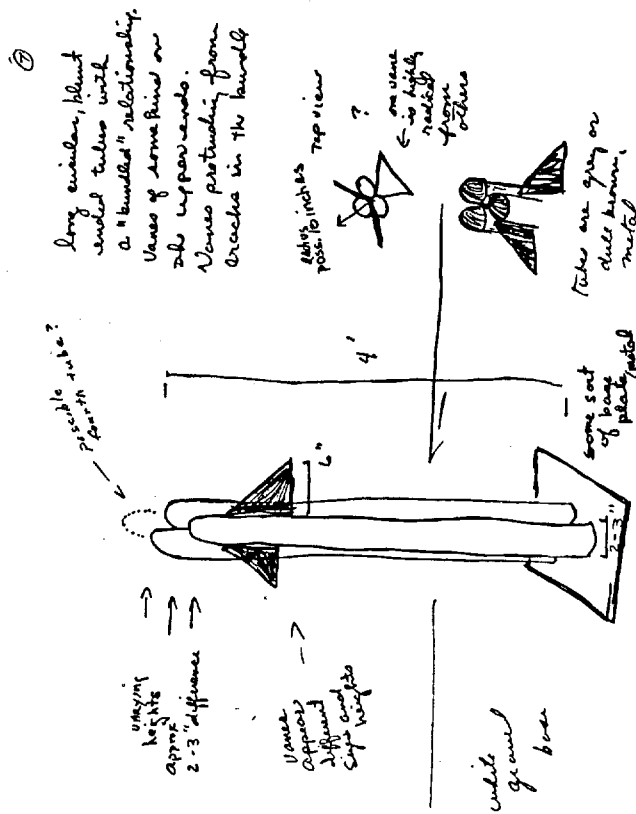 7
long circular, blunt
ended tubes with
a "bundled" relationship.
Vanes of some kind on
the upper ends.
Vanes protruding from
cracks in the bundle
possible
fourth tube?
radius
poss. 10 inches
Top view
?
one vane
← is highly
radical
from
others
4'
tubes are grey or
dull brown,
metal
6"
some sort
of base
plate/metal
2-3"
varying
heights
approx
2-3" difference
Vanes
appear
different
sizes and
heights
white
gravel
base